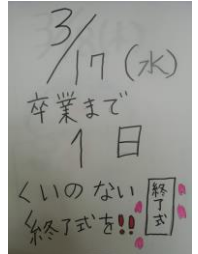 3/17(水)
卒業まで
1日
くいのない
終了式を!!
終了式